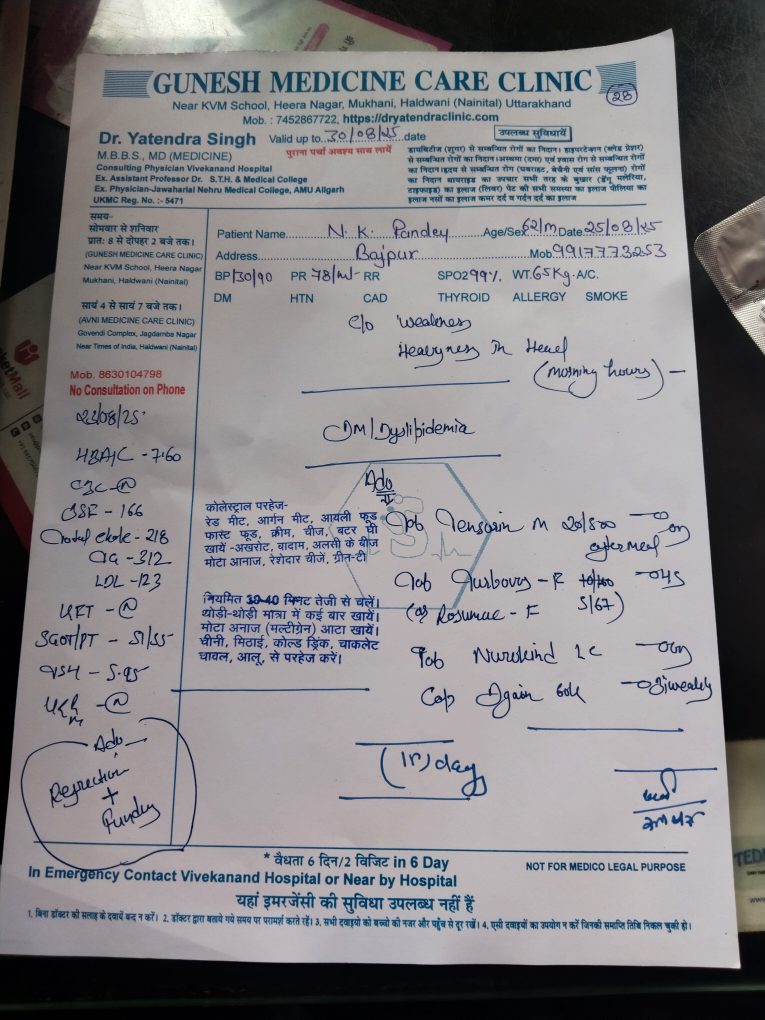 GUNESH MEDICINE CARE CLINIC
28
Near KVM School, Heera Nagar, Mukhani, Haldwani (Nainital) Uttarakhand
Mob. : 7452867722, https://dryatendraclinic.com
Dr. Yatendra Singh Valid up to 30/08/25 date
पुराना पर्चा अवश्य साथ लायें
M.B.B.S., MD (MEDICINE)
Consulting Physician Vivekanand Hospital
Ex. Assistant Professor Dr. S.T.H. & Medical College
Ex. Physician-Jawaharlal Nehru Medical College, AMU Aligarh
UKMC Reg. No. :- 5471
उपलब्ध सुविधायें
डायबिटीज (शुगर) से सम्बन्धित रोगों का निदान। हाइपरटेंशन (ब्लेड प्रेशर)
से सम्बन्धित रोगों का निदान।अस्थमा (दमा) एवं श्वास रोग से सम्बन्धित रोगों
का निदान।हृदय सम्बन्धित रोग (घबराहट, बेचैनी एवं सांस फूलना) रोगों
का निदान थायराइड का उपचार सभी तरह के बुखार (डेंगू मलेरिया,
टाइफाइड) का इलाज (लिवर) पेट की सभी समस्या का इलाज पीलिया का
इलाज नसों का इलाज कमर दर्द व गर्दन दर्द का इलाज
समय-
सोमवार से शनिवार
प्रातः 8 से दोपहर 2 बजे तक।
(GUNESH MEDICINE CARE CLINIC)
Near KVM School, Heera Nagar
Mukhani, Haldwani (Nainital)
सायं 4 से सायं 7 बजे तक।
(AVNI MEDICINE CARE CLINIC)
Govendi Complex, Jagdamba Nagar
Near Times of India, Haldwani (Nainital)
Mob. 8630104798
No Consultation on Phone
Patient Name N. K. Pandey Age/Sex 62/m Date 25/08/25
Address Bajpur Mob. 9917773253
BP 130/90 PR 78/m RR SPO2 99% WT. 65Kg A/C.
DM HTN CAD THYROID ALLERGY SMOKE
c/o weakness
Heavyness in Head
(morning hours)
DM/Dyslipidemia
Adv
HBA1C - 7.60
CBC - N
BSF - 166
Total chole - 218
TG - 312
LDL - 123
KFT - N
SGOT/PT - 51/55
TSH - 5.95
N
Adv
Refraction
+
Fundus
कोलेस्ट्राल परहेज-
रेड मीट, आर्गन मीट, आयली फूड
फास्ट फूड, क्रीम, चीज, बटर घी
खायें -अखरोट, बादाम, अलसी के बीज
मोटा आनाज, रेशेदार चीजें, ग्रीन-टी
नियमित 30-40 मिनट तेजी से चलें।
थोड़ी-थोड़ी मात्रा में कई बार खायें।
मोटा अनाज (मल्टीग्रेन) आटा खायें।
चीनी, मिठाई, कोल्ड ड्रिंक, चाकलेट
चावल, आलू, से परहेज करें।
Tab M 20/500
after meal
Tab - F - HS
(or Rosumac - F 5/67)
Tab Nurokind LC
Cap 60k - Biweekly
day
* वैधता 6 दिन/2 विजिट in 6 Day
In Emergency Contact Vivekanand Hospital or Near by Hospital
NOT FOR MEDICO LEGAL PURPOSE
यहां इमरजेंसी की सुविधा उपलब्ध नहीं हैं
1. बिना डॉक्टर की सलाह के दवायें बन्द न करें। 2. डॉक्टर द्वारा बताये गये समय पर परामर्श करते रहें। 3. सभी दवाइयो को बच्चो की नजर और पहुँच से दूर रखें। 4. एसी दवाइयों का उपयोग न करें जिनकी समाप्ति तिथि निकल चुकी हो।